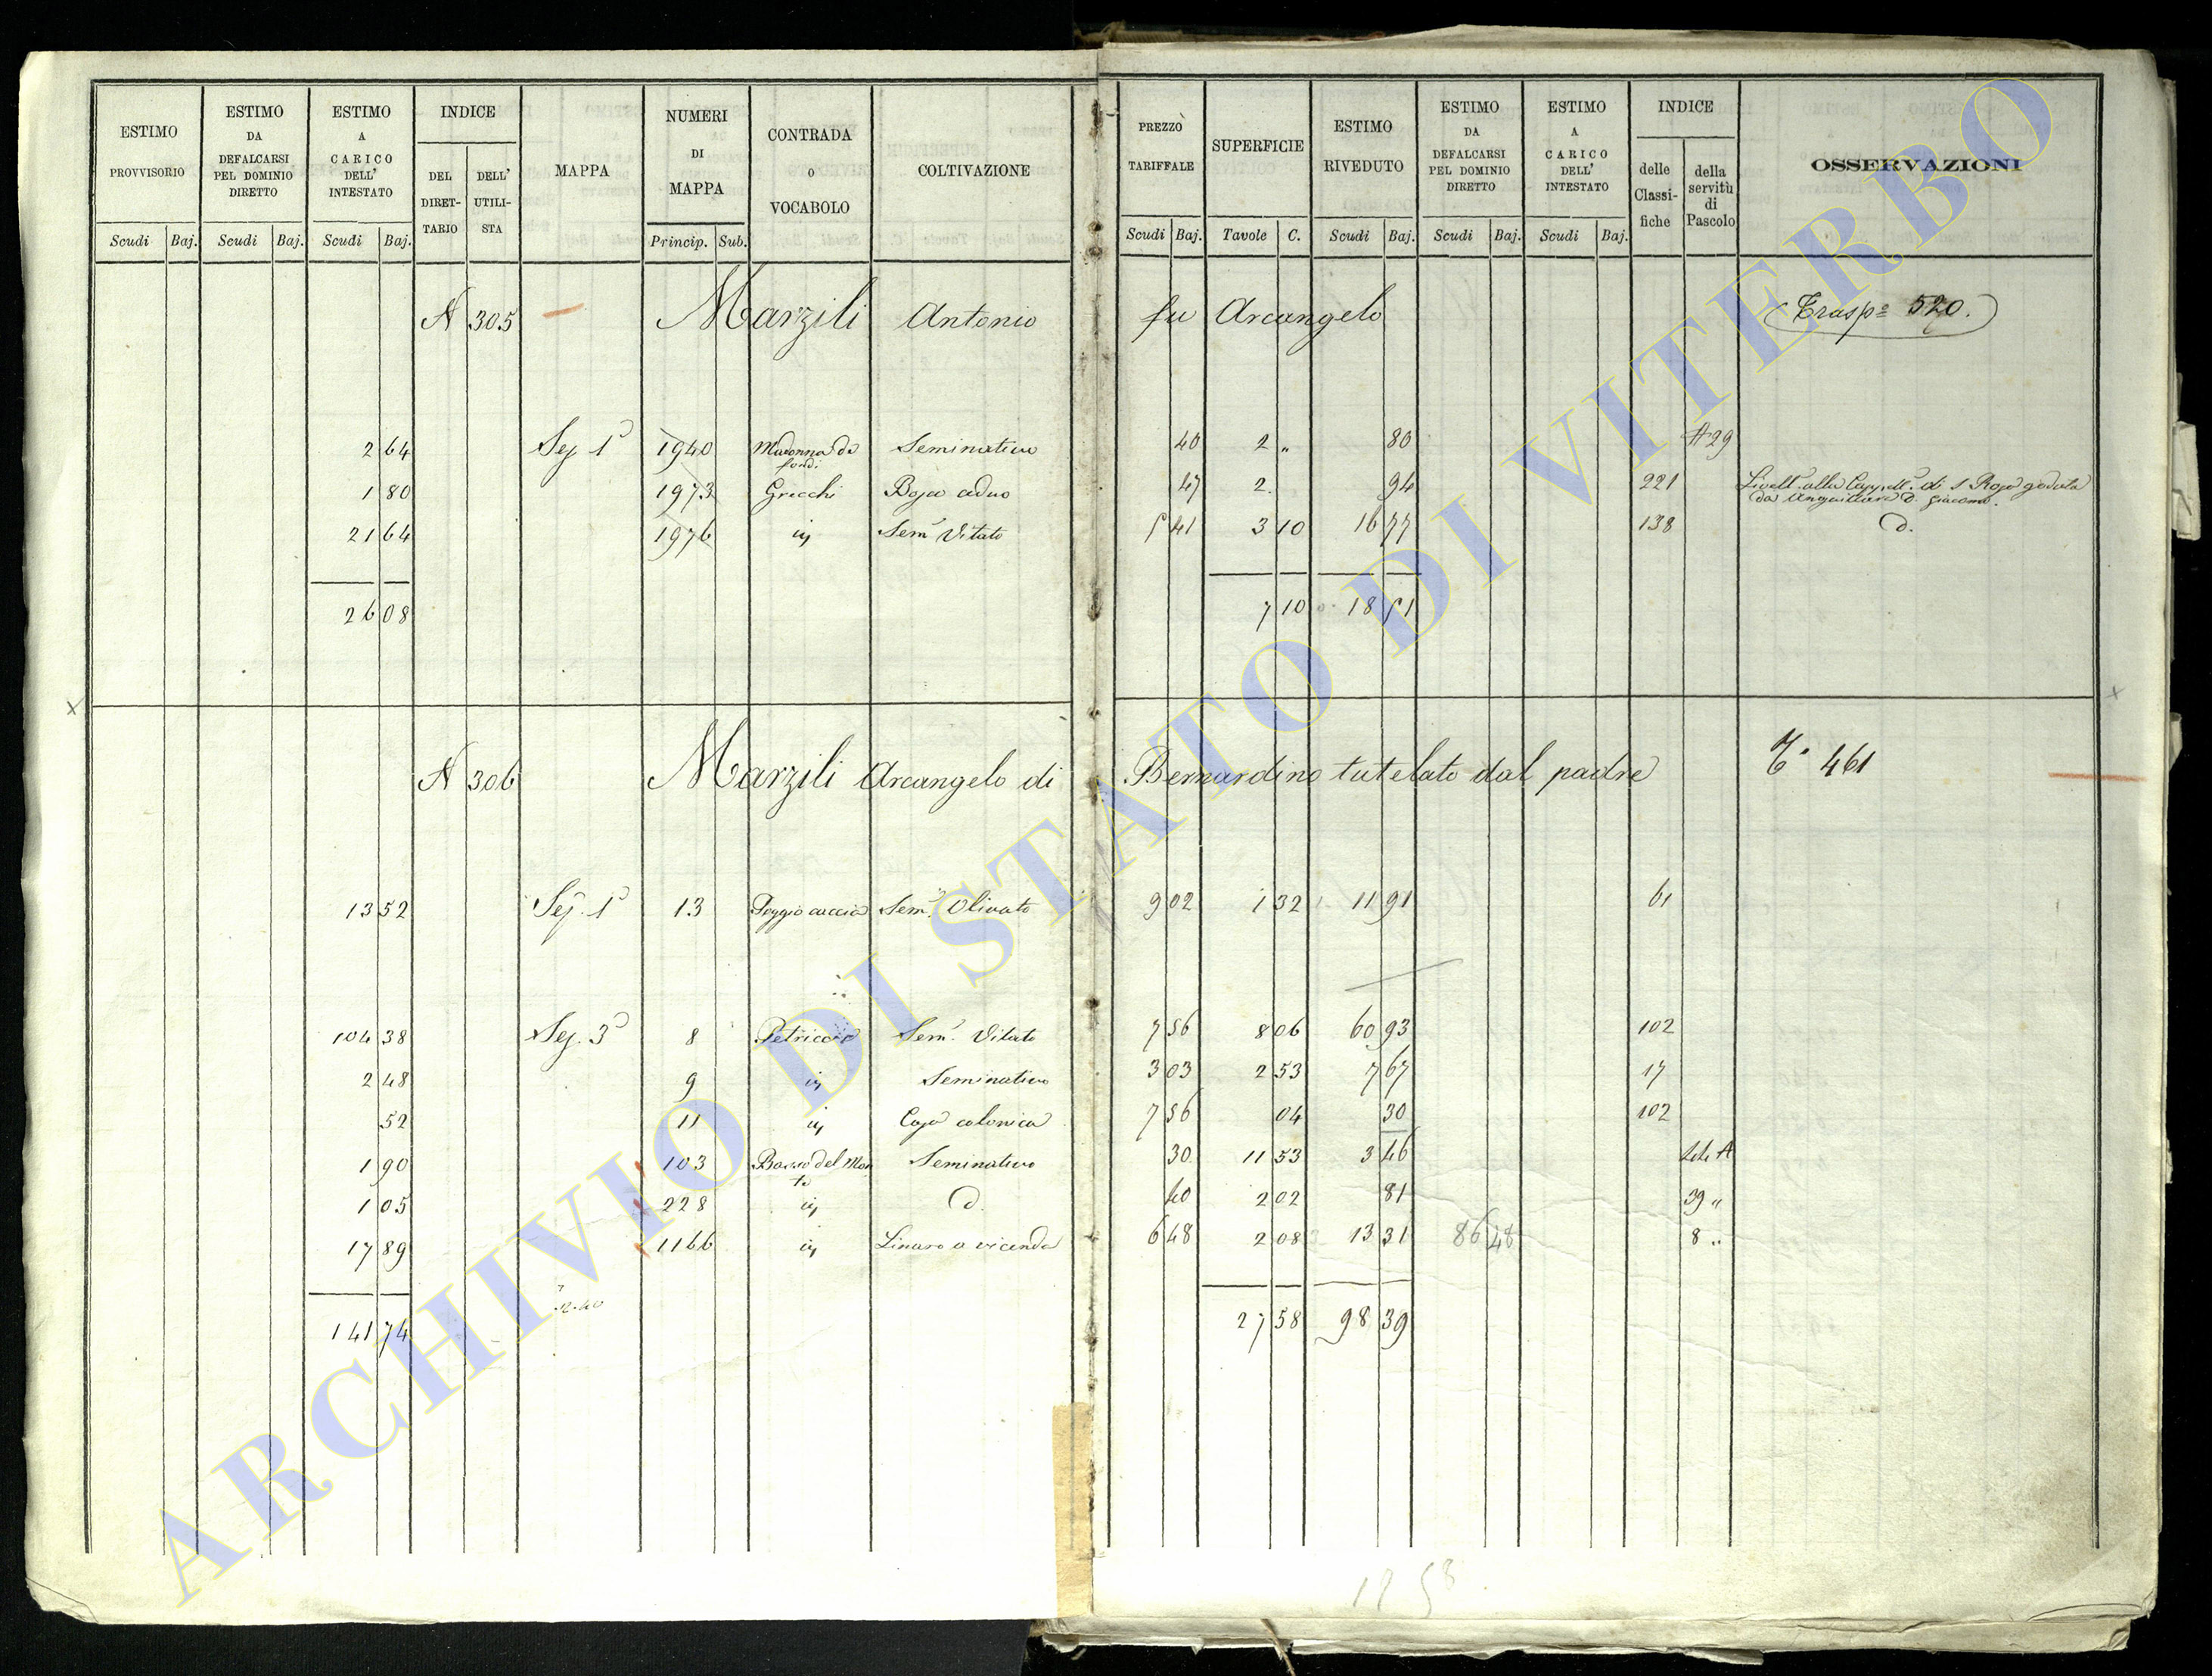 ESTIMO PROVVISORIO
ESTIMO DA DEFALCARSI PEL DOMINIO DIRETTO
ESTIMO A CARICO DELL' INTESTATO
INDICE
DEL DIRET-TARIO
DELL' UTILI-STA
MAPPA
NUMERI DI MAPPA
CONTRADA O VOCABOLO
COLTIVAZIONE
PREZZO TARIFFALE
SUPERFICIE
ESTIMO RIVEDUTO
ESTIMO DA DEFALCARSI PEL DOMINIO DIRETTO
ESTIMO A CARICO DELL' INTESTATO
INDICE
delle Classi-fiche
della servitù di Pascolo
OSSERVAZIONI
Scudi Baj. Scudi Baj. Scudi Baj. Princip. Sub. Scudi Baj. Tavole C. Scudi Baj. Scudi Baj. Scudi Baj.
N 305 Marzili Antonio fu Arcangelo Trasp.º 520.
2 64 Sez 1ª 1940 Madonna de fondi Seminativo 40 2 „ 80 A 29
1 80 1973 Gricchi Bosco ceduo 47 2 94 221 Livell. alla Capp. di S Rosa goduta da Anguillara D. Giacomo.
21 64 1976 ivi Semº Vitato 5 41 3 10 16 77 138 d.
26 08 7 10 18 51
N 306 Marzili Arcangelo di Bernardino tutelato dal padre Tº 461
13 52 Sez. 1ª 13 Poggio caccia Semº Olivato 9 02 1 32 11 91 61
104 38 Sez. 3ª 8 Petriccio Semº Vitato 7 56 8 06 60 93 102
2 48 9 ivi Seminativo 3 03 2 53 7 67 17
52 11 ivi Casa colonica 7 56 04 30 102
1 90 103 Basso del Monte Seminativo 30 11 53 3 46 A
1 05 228 ivi d. 40 2 02 81 39 „
17 89 1166 ivi Linaro a vicenda 6 48 2 08 13 31 86 48 8 „
141 74 27 58 98 39
ARCHIVIO DI STATO DI VITERBO